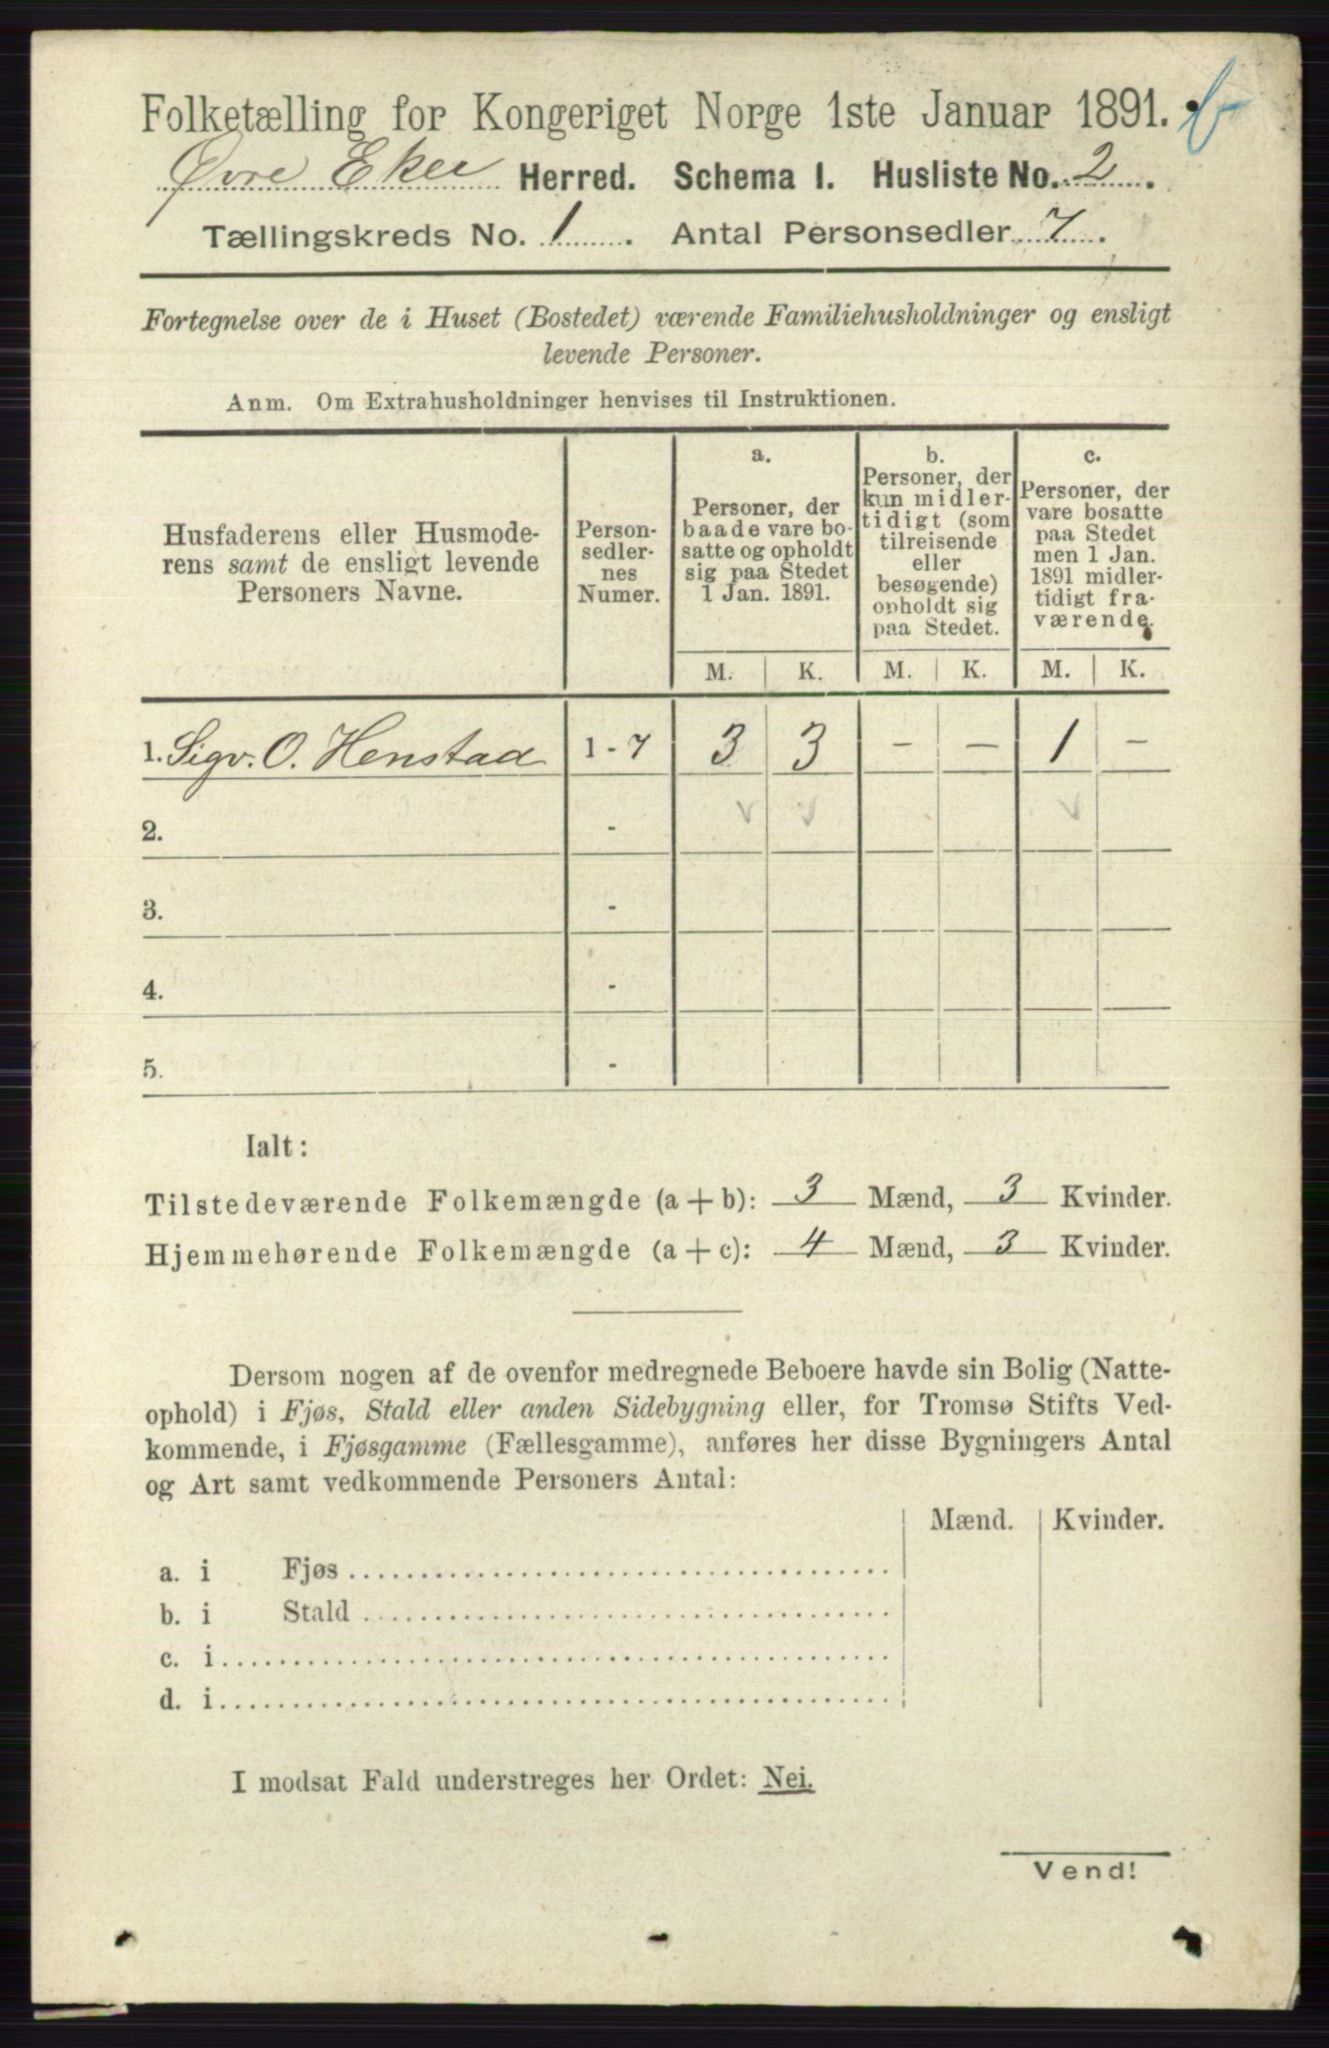 Folketælling for Kongeriget Norge 1ste Januar 1891.
Øvre Eker Herred. Schema I. Husliste No. 2.
Tællingskreds No. 1. Antal Personsedler 7.
Fortegnelse over de i Huset (Bostedet) værende Familiehusholdninger og ensligt
levende Personer.
Anm. Om Extrahusholdninger henvises til Instruktionen.
Husfaderens eller Husmode-
rens samt de ensligt levende
Personers Navne.
Person-
sedler-
nes
Numer.
a.
Personer, der
baade vare bo-
satte og opholdt
sig paa Stedet
1 Jan. 1891.
b.
Personer, der
kun midler-
tidigt (som
tilreisende
eller
besøgende)
opholdt sig
paa Stedet.
c.
Personer, der
vare bosatte
paa Stedet
men 1 Jan.
1891 midler-
tidigt fra-
værende.
M. K. M. K. M. K.
1. Sigv. O. Henstad 1 - 7 3 3 - - 1 -
2. -
3. -
4. -
5. -
Ialt:
Tilstedeværende Folkemængde (a + b): 3 Mænd, 3 Kvinder.
Hjemmehørende Folkemængde (a + c): 4 Mænd, 3 Kvinder.
Dersom nogen af de ovenfor medregnede Beboere havde sin Bolig (Natte-
ophold) i Fjøs, Stald eller anden Sidebygning eller, for Tromsø Stifts Ved-
kommende, i Fjøsgamme (Fællesgamme), anføres her disse Bygningers Antal
og Art samt vedkommende Personers Antal:
Mænd. Kvinder.
a. i Fjøs
b. i Stald
c. i
d. i
I modsat Fald understreges her Ordet: Nei.
Vend!